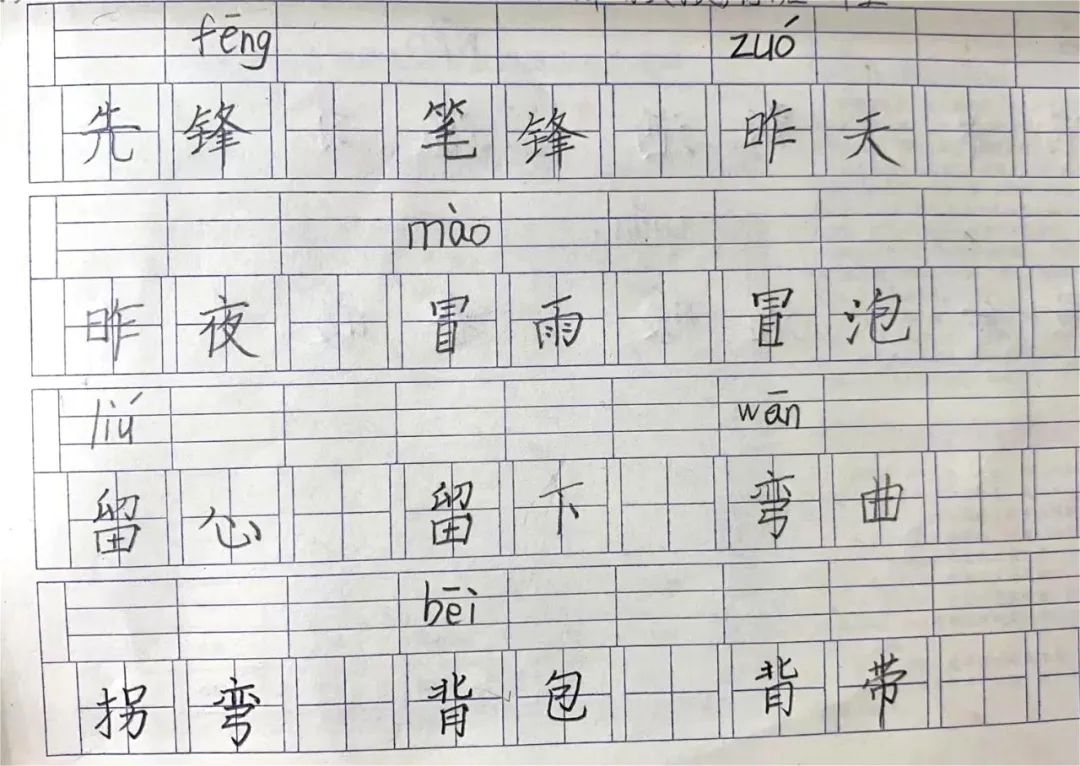 fēng zuó
先锋 笔锋 昨天
mào
昨夜 冒雨 冒泡
liú wān
留心 留下 弯曲
bēi
拐弯 背包 背带